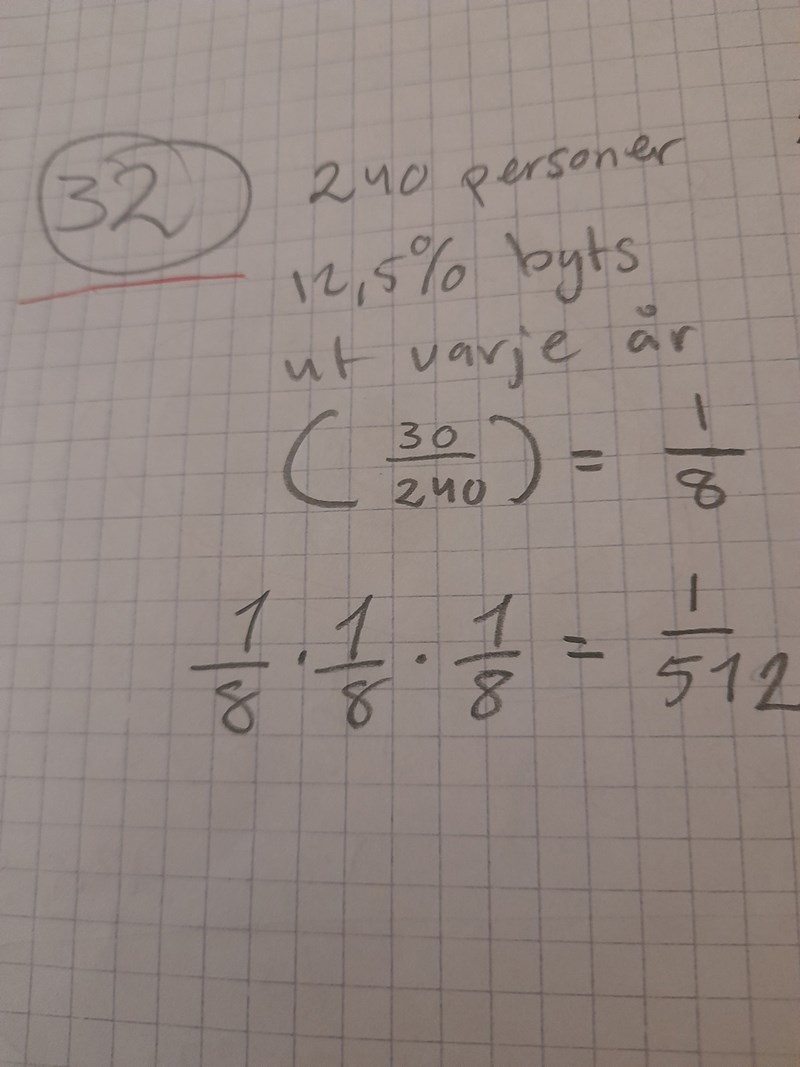 32
240 personer
12,5% byts
ut varje år
(30/240) = 1/8
1/8 · 1/8 · 1/8 = 1/512